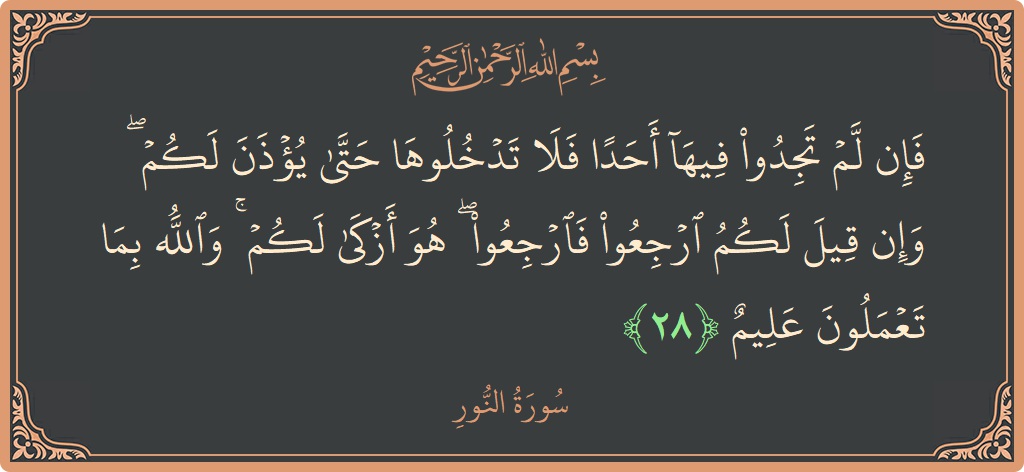 بِسْمِ اللَّهِ الرَّحْمَٰنِ الرَّحِيمِ
فَإِن لَّمْ تَجِدُوا۟ فِيهَآ أَحَدًا فَلَا تَدْخُلُوهَا حَتَّىٰ يُؤْذَنَ لَكُمْ ۖ
وَإِن قِيلَ لَكُمُ ٱرْجِعُوا۟ فَٱرْجِعُوا۟ ۖ هُوَ أَزْكَىٰ لَكُمْ ۚ وَٱللَّهُ بِمَا
تَعْمَلُونَ عَلِيمٌ ﴿٢٨﴾
سُورَةُ النُّورِ